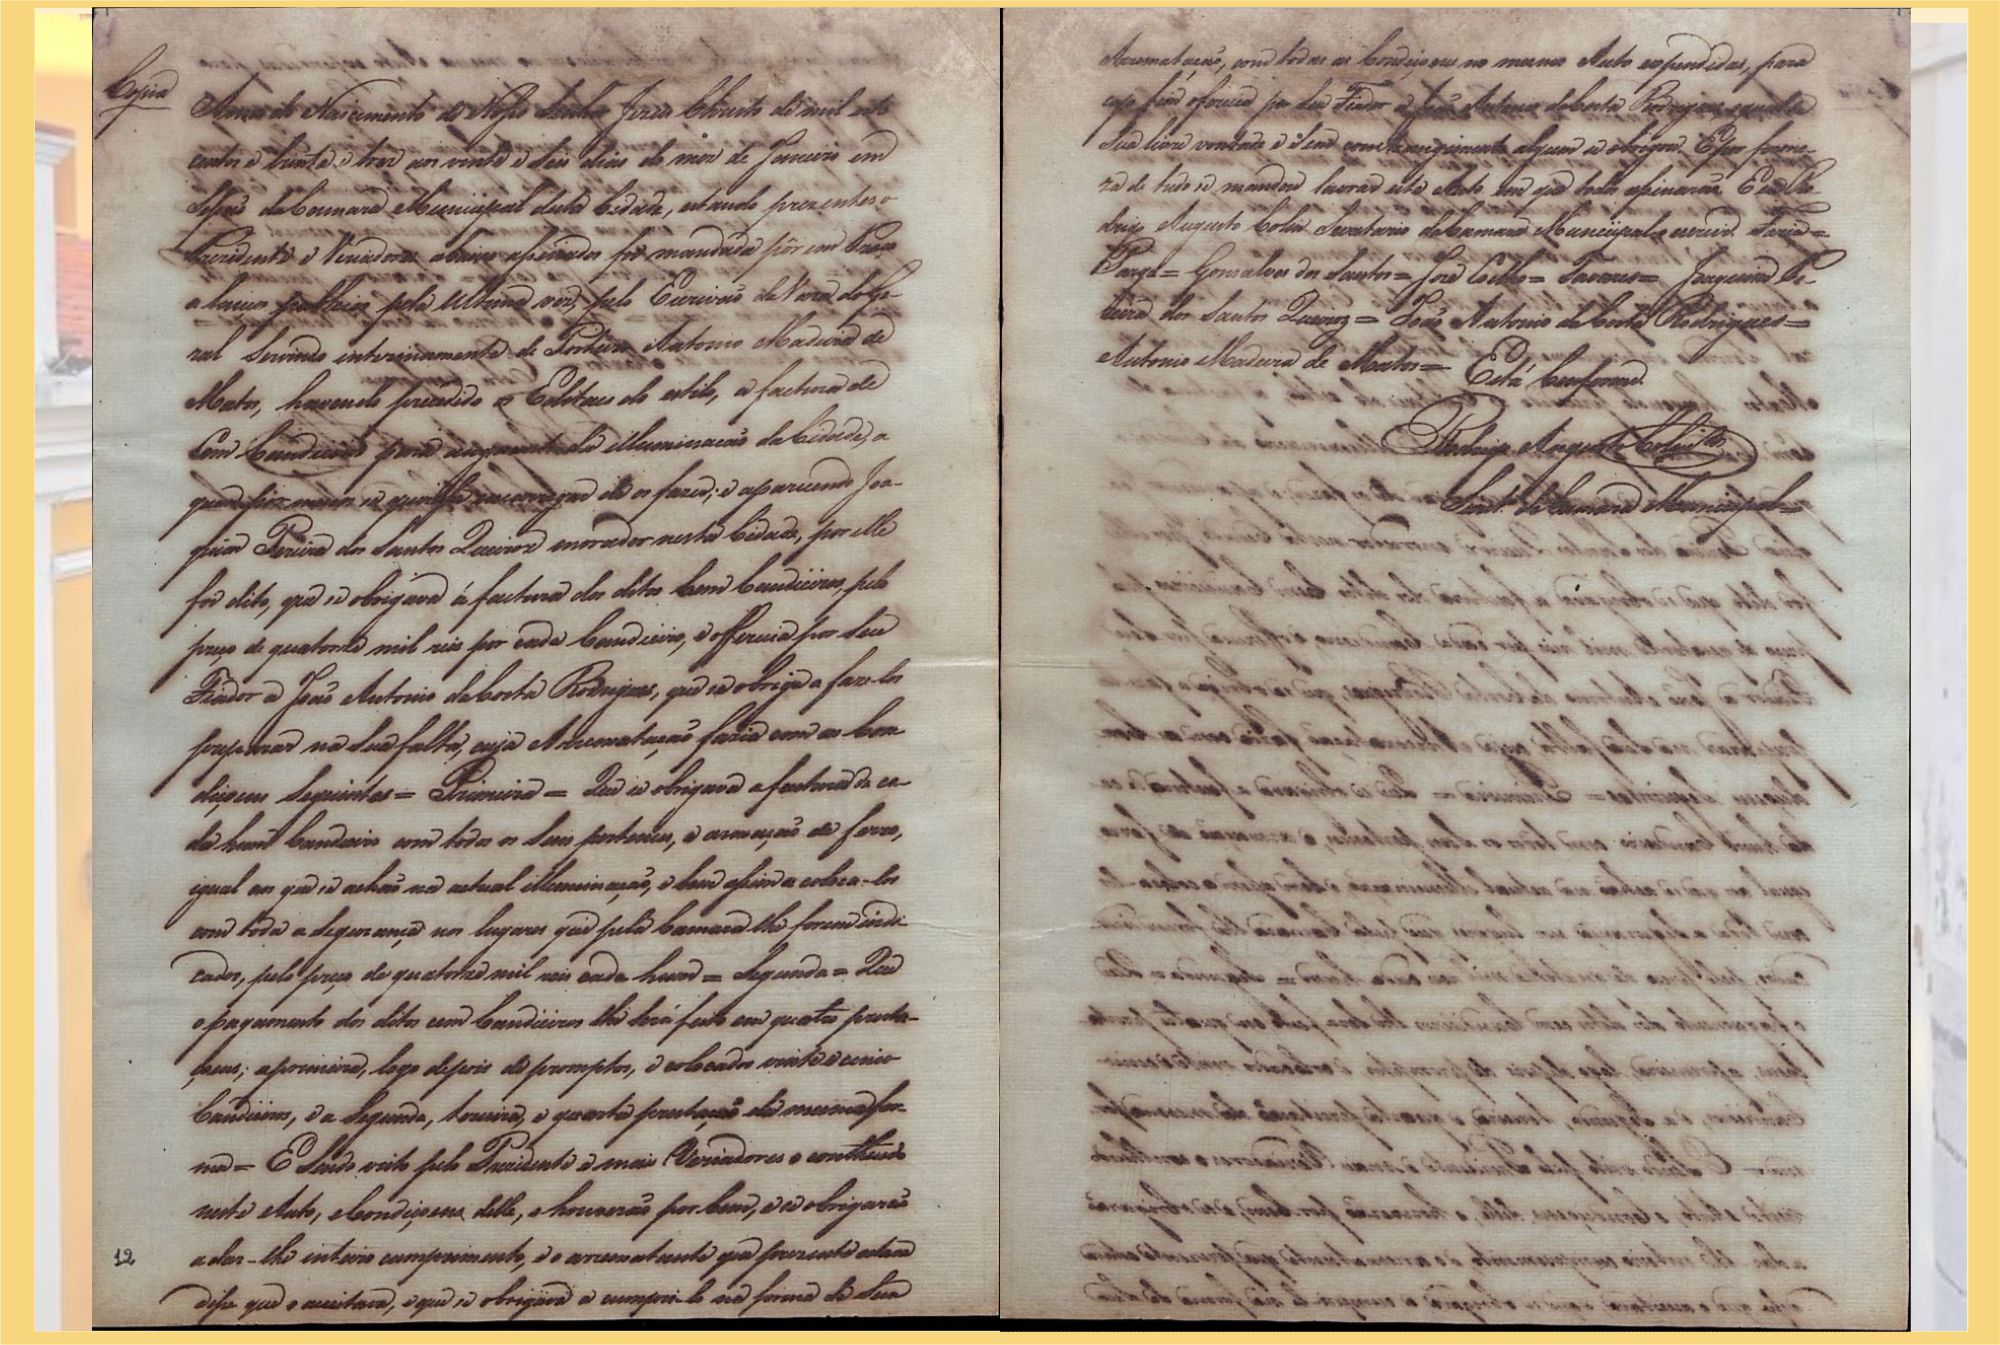 Copia
Anno do Nascimento de Nosso Senhor Jezus Christo de mil oito
centos e trinta e tres aos vinte e seis dias do mez de Janeiro em
Sessaõ da Camara Municipal desta Cidade, estando prezentes o
Prezidente e Vereadores abaixo assinados foi mandada pôr em Praça
a lanços publicos pela ultima vez, pelo Escrivaõ da Vara do Ge-
ral Servindo interinamente de Porteiro Antonio Madeira de
Matos, havendo precedido os Editaes do estilo, a factura de
Cem Candieiros para augmento da illuminaçaõ da Cidade, a
quem por menos se quizesse encarregar de os fazer; e aparecendo Joa-
quim Pereira dos Santos Queiroz morador nesta Cidade, por elle
foi dito, que se obrigava á factura dos ditos Cem Candieiros, pelo
preço de quatorze mil reis por cada Candieiro, e offerecia por seu
Fiador a Joaõ Antonio da Costa Rodrigues, que se obriga a faze-los
preparar na Sua falta, cuja Arremataçaõ fazia com as Con-
diçoens Seguintes = Primeira = Que se obrigava a factura de ca-
da hum Candieiro com todos os Seus pertences, e armaçaõ de ferro,
igual aos que se achaõ na actual illuminaçaõ, e bem assim a coloca-los
com toda a Segurança nos lugares que pela Camara lhe forem indi-
cados, pelo preço de quatorze mil reis cada hum = Segunda = Que
o pagamento dos ditos cem Candieiros lhe será feito em quatro presta-
çoens; a primeira, logo depois de promptos, e colocados vinte e cinco
Candieiros, e a Segunda, terceira, e quarta prestaçaõ da mesma for-
ma = E Sendo visto pelo Prezidente e mais Vereadores o contheudo
neste Auto, e Condiçoens delle, o houveraõ por bem, e se obrigaraõ
a dar-lhe inteiro cumprimento, e o arrematante que prezente estava
disse que o aceitava, e que se obrigava a cumpri-lo na forma da Sua
12
Arremataçaõ, com todas as Condiçoens no mesmo Auto expendidas, para
cujo fim oferecia por Seu Fiador a Joaõ Antonio da Costa Rodrigues, e que de
Sua livre vontade e Sem constrangimento algum se obrigou. E por firme-
za de tudo se mandou lavrar este Auto em que todos assinaraõ. E eu Ro-
drigo Augusto Secretario da Camara Municipal o escrevi. Faria =
Parga = Gonsalves dos Santos = José Coelho = Tavares = Joaquim Pe-
reira dos Santos Queiroz = Joaõ Antonio da Costa Rodrigues =
Antonio Madeira de Matos = Está Conforme.
Rodrigo Augusto
Secret. da Camara Municipal =